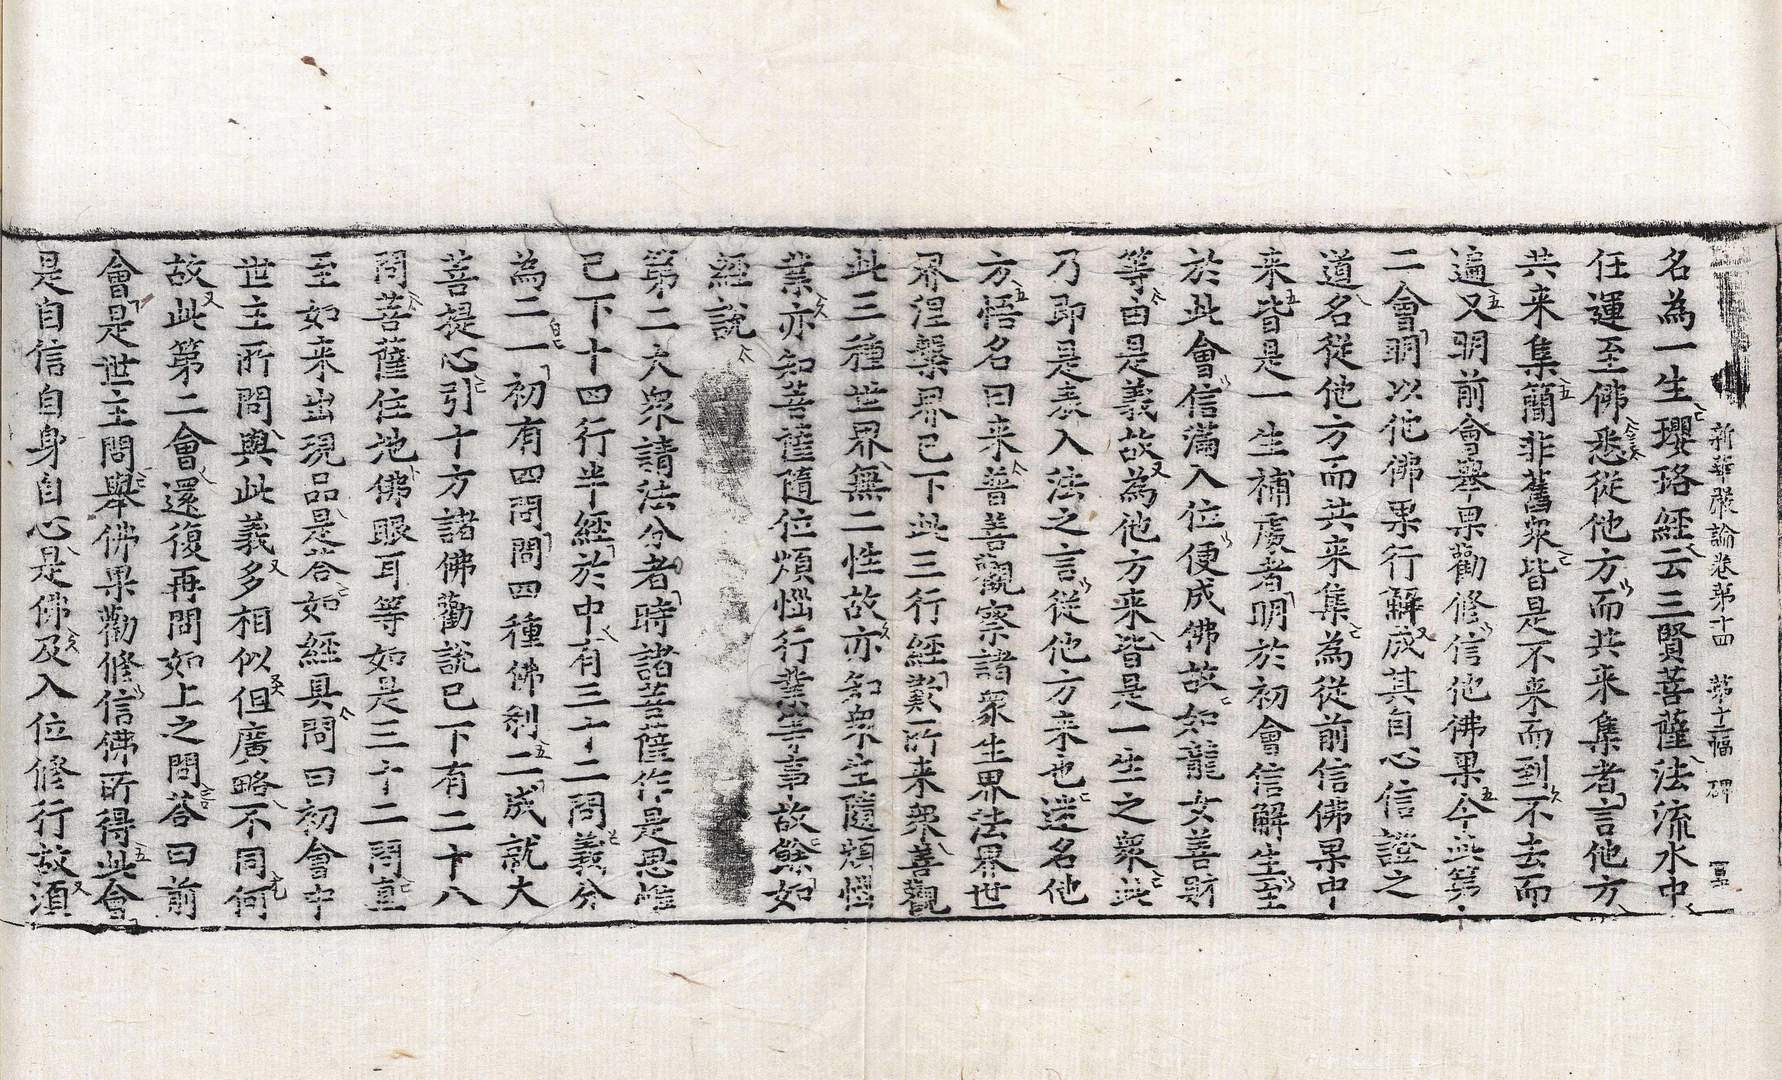 新華嚴論卷第十四　第十二幅　碑
名為一生瓔珞經云三賢菩薩法流水中
任運至佛悉從他方而共来集者言他方
共来集簡非舊衆皆是不来而到不去而
遍又明前會舉果勸修信他佛果今此第
二會明以他佛果行解成其自心信證之
道名從他方而共来集為從前信佛果中
来皆是一生補處者明於初會信解生至
於此會信滿入位便成佛故如龍女善財
等由是義故為他方来皆是一生之衆此
乃即是表入法之言從他方来也迷名他
方悟名曰来普善觀察諸衆生界法界世
界涅槃界已下此三行經歎所来衆善觀
此三種世界無二性故亦知衆生隨煩惱
業亦知菩薩隨位煩惱行業等事故餘如
經說
第二大衆請法分者時諸菩薩作是思惟
已下十四行半經於中有三十二問義分
為二一初有四問問四種佛刹二成就大
菩提心引十方諸佛勸說已下有二十八
問菩薩住地佛眼耳等如是三十二問直
至如来出現品是荅如經具問曰初會中
世主所問與此義多相似但廣略不同何
故此第二會還復再問如上之問荅曰前
會是世主問舉佛果勸修信佛所得此會
是自信自身自心是佛及入位修行故須